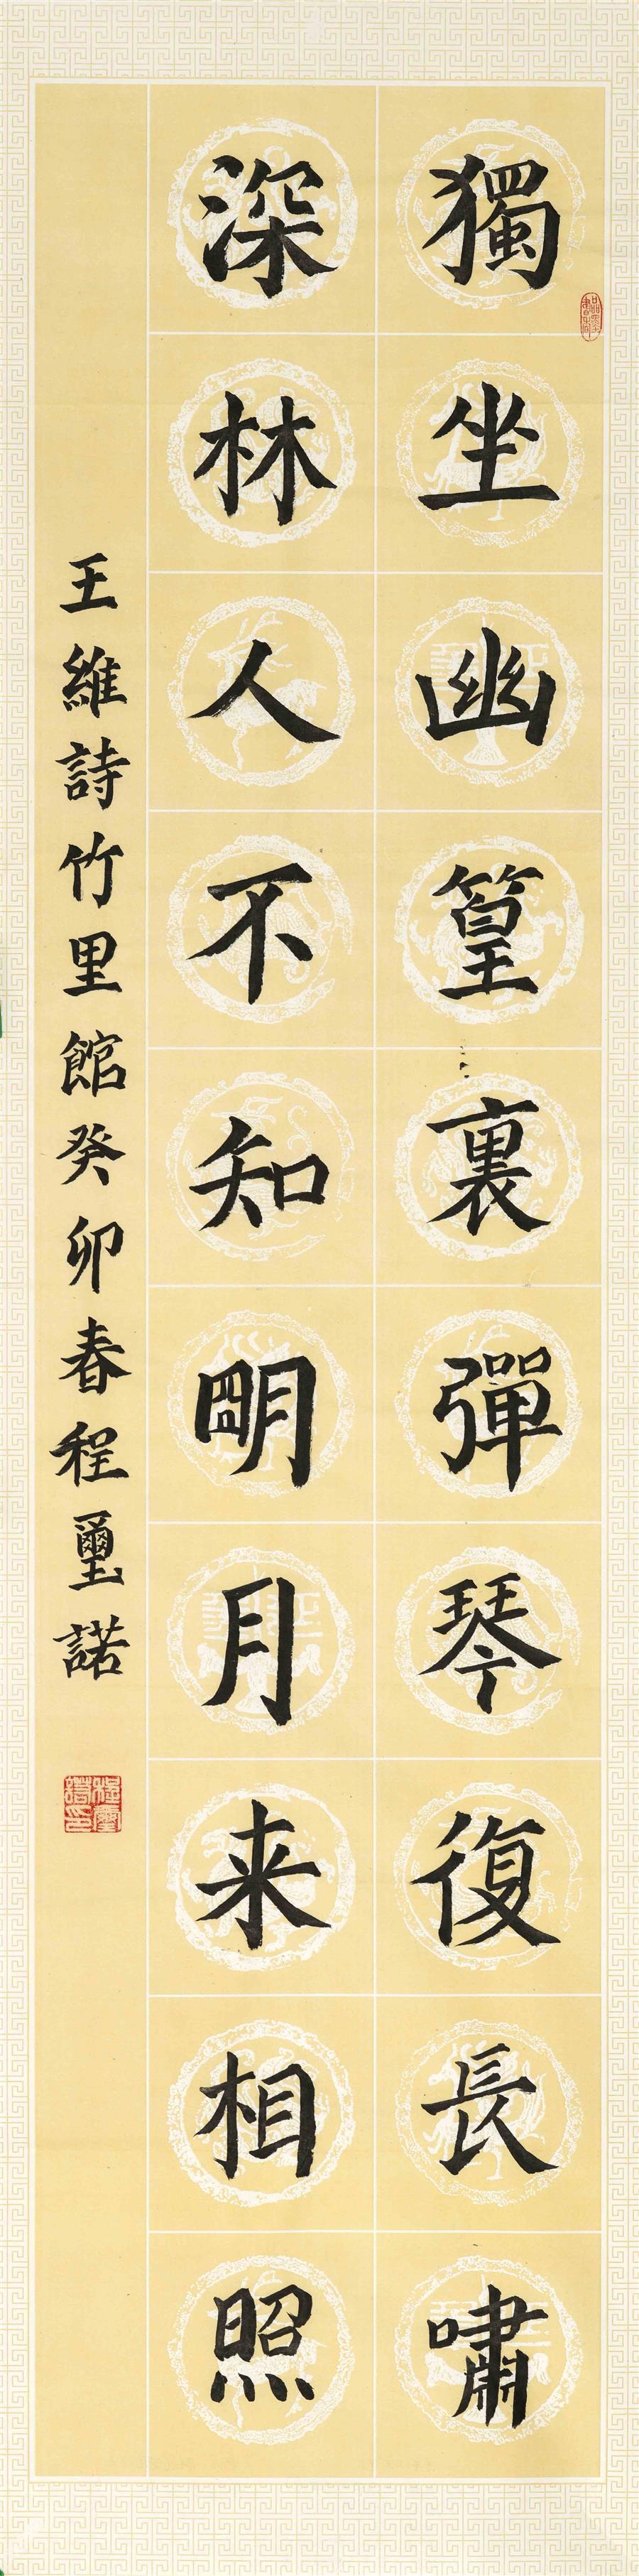 獨坐幽篁裏彈琴復長嘯
深林人不知明月来相照
王維詩竹里館癸卯春程璽諾
程璽諾印